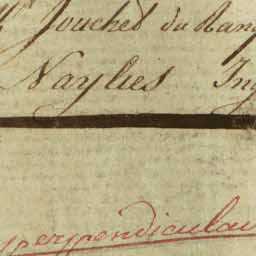 Jouchet du Rang
Naylies Ing
perpendicular